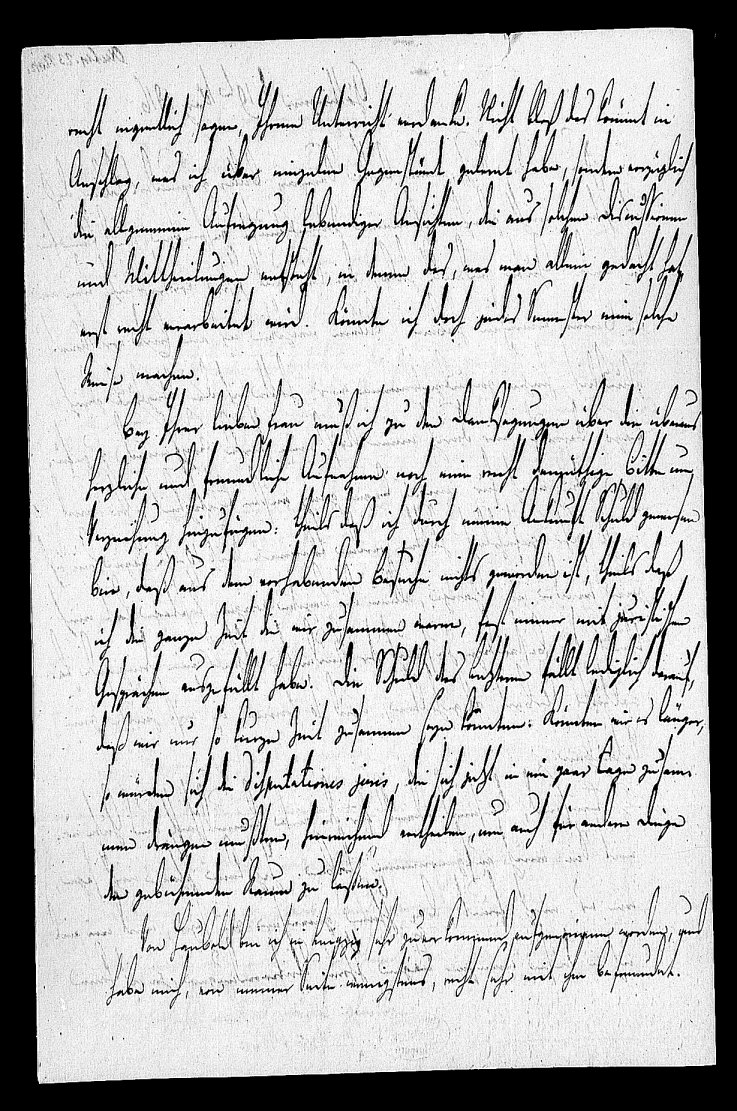 recht eigentlich sagen, Ihrem Unterricht verdanke. Nicht bloß das kommt in
Anschlag, was ich über einzelne Gegenstände gelernt habe, sondern vorzüglich
die allgemeine Aufregung lebendiger Ansichten, die aus solchen Discussionen
und Mittheilungen entsteht, in denen das, was man allein gedacht hat,
erst recht verarbeitet wird. Könnte ich doch jedes Semester eine solche
Reise machen.
Bey Ihrer lieben Frau muß ich zu den Danksagungen über die überaus
herzliche und freundliche Aufnahme noch eine recht demüthige Bitte um
Verzeihung hinzufügen: theils daß ich durch meine Ankunft Schuld gewesen
bin, daß aus dem vorhabenden Besuche nichts geworden ist, theils daß
ich die ganze Zeit die wir zusammen waren, fast immer mit juristischen
Gesprächen ausgefüllt habe. Die Schuld des letztern fällt lediglich darauf,
daß wir nur so kurze Zeit zusammen seyn konnten: Könnten wir es länger,
so würden sich die disputationes juris, die sich jetzt in ein paar Tage zusam
men drängen mußten, hinreichend vertheilen, um auch für andere Dinge
den gebührenden Raum zu lassen.
Von Haubold bin ich in Leipzig sehr zuvorkommend aufgenommen worden, und
habe mich, von meiner Seite wenigstens, recht sehr mit ihm befreundet.